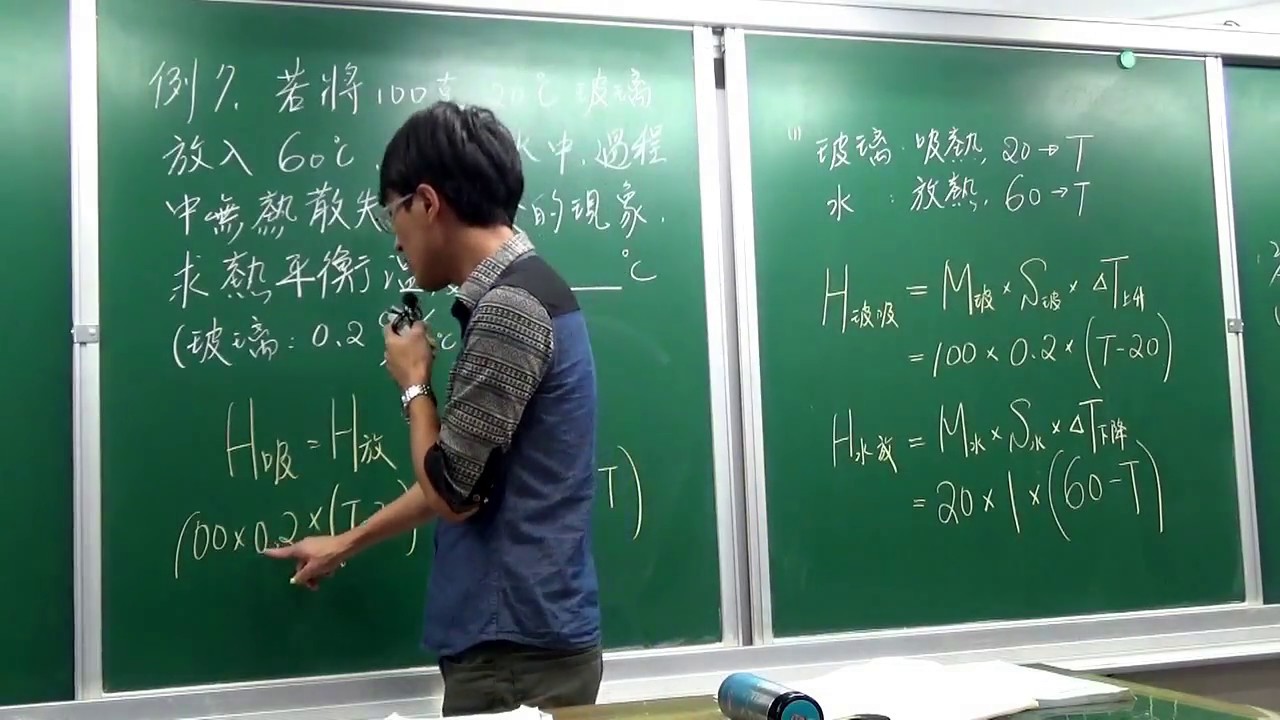 例7. 若將100克 20℃ 玻璃
放入 60℃ 水中, 過程
中無熱散失 的現象.
求熱平衡溫 ___℃
(玻璃: 0.2 ℃
H吸 = H放
100 × 0.2 × (T-2 ) T)
(1) 玻璃: 吸熱, 20→T
水 : 放熱, 60→T
H玻吸 = M玻 × S玻 × ΔT上升
= 100 × 0.2 × (T-20)
H水放 = M水 × S水 × ΔT下降
= 20 × 1 × (60-T)